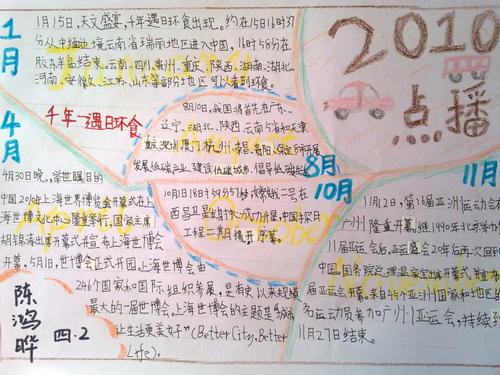 1月
1月15日,天文盛宴,千年一遇日环食出现。约在15日16时37
分从中缅边境云南省瑞丽地区进入中国,16时58分在
胶东半岛结束。云南、四川、贵州、重庆、陕西、湖南、湖北、
河南、安徽、江苏、山东等部分地区可以看到环食。
千年一遇日环食
2010
点播
4月
4月30日晚。举世瞩目的
中国2010年上海世界博览会开幕式在上
海世博文化中心隆重举行,国家主席
胡锦涛出席开幕式并宣布上海世博会
开幕,5月1日,世博会正式开园。上海世博会由
246个国家和国际组织参展,是有史以来规模
最大的一届世博会。上海世博会的主题是"城市
让生活更美好"(Better City, Better
Life)。
8月
8月10日,我国将首先在广东、
辽宁、湖北、陕西、云南5省和天津、
重庆、深圳、厦门、杭州、南昌、贵阳、保定8市开展
发展低碳产业、建设低碳城市、倡导低碳生活
10月
10月1日18时59分57秒,嫦娥二号在
西昌卫星发射中心成功升空,中国探月
工程二期揭开序幕。
11月
11月12日,第16届亚洲运动会在
广州隆重开幕,继1990年北京举办
11届亚运会后,亚运盛会20年后再次回到
中国。国务院总理温家宝出席开幕式并宣布
届亚运会开幕。来自45个亚洲国家和地区的
名运动员参加广州亚运会,并持续到
11月27日结束。
陈鸿晔
四.2